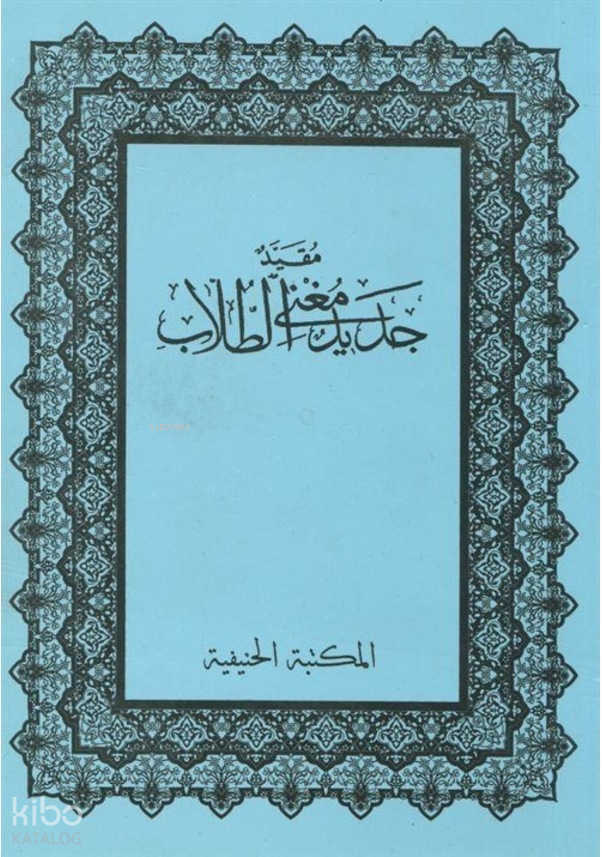 مُقَيَّدْ
جَدِيدْ مُغْنِي الطُّلَّابِ
المكتبة الحنيفية
kibo
KATALOG